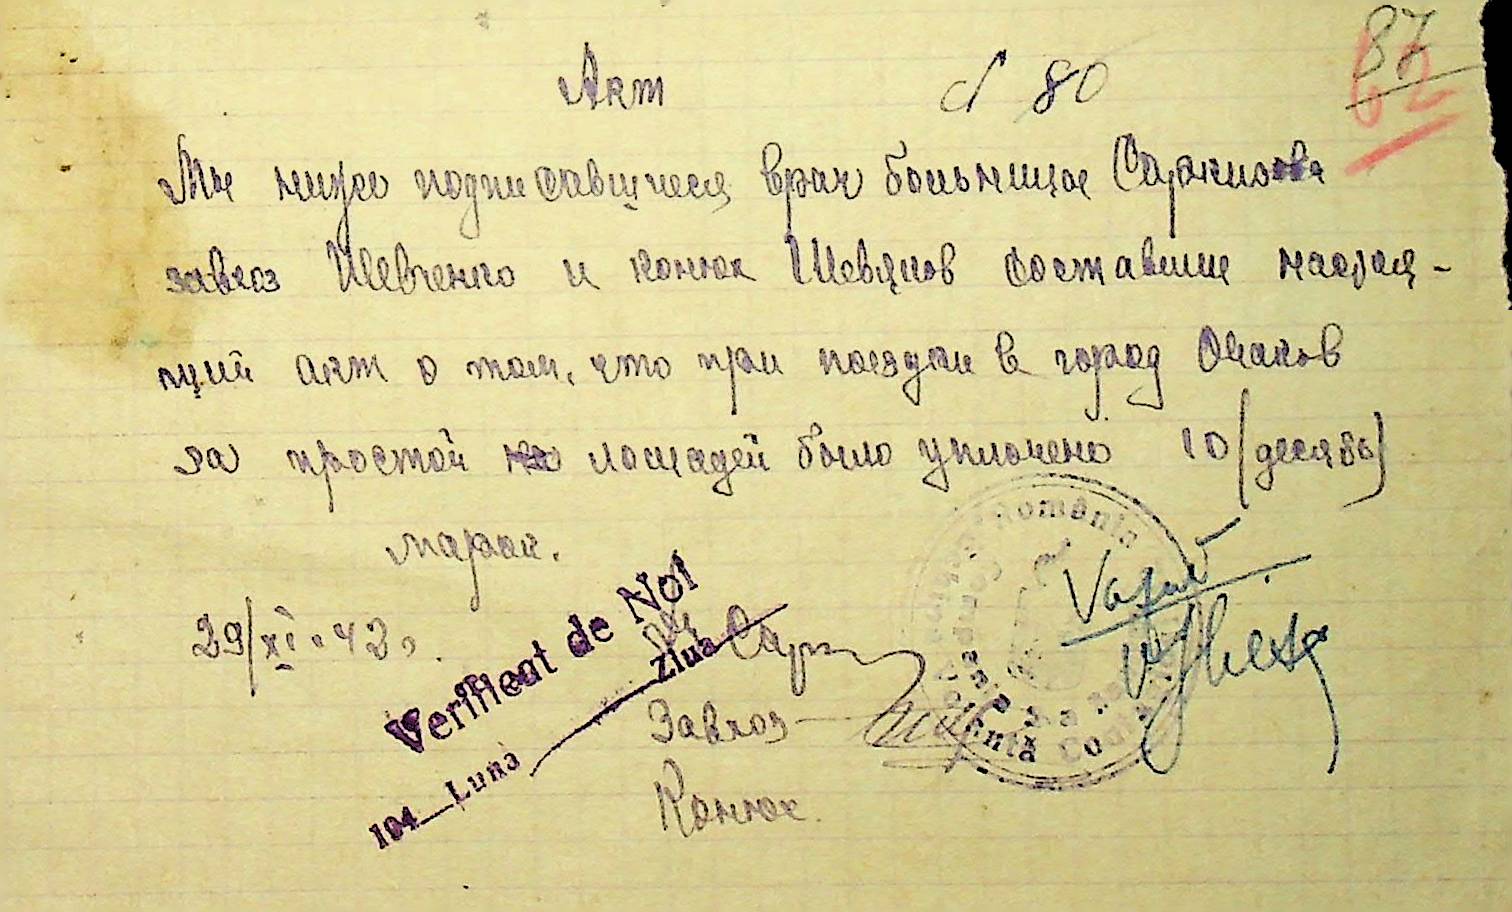 87
62
Акт № 80
Мы ниже подписавшиеся врач больницы Саркисова
завхоз Шевченко и конюх Шевцов составили настоя-
щий акт о том, что при поездки в город Очаков
за простой лошадей было уплочено 10 (десять)
марок.
29/XI-43г.
Verificat de Noi
194 Luna Ziua
Сарки
Завхоз
Конюх
România